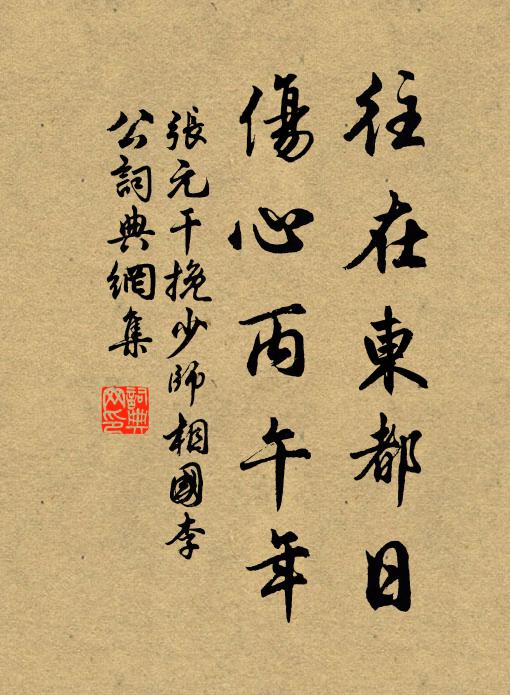 往在東都日
傷心丙午年
張元干挽少師相國李
公詞典網集
詞典网印